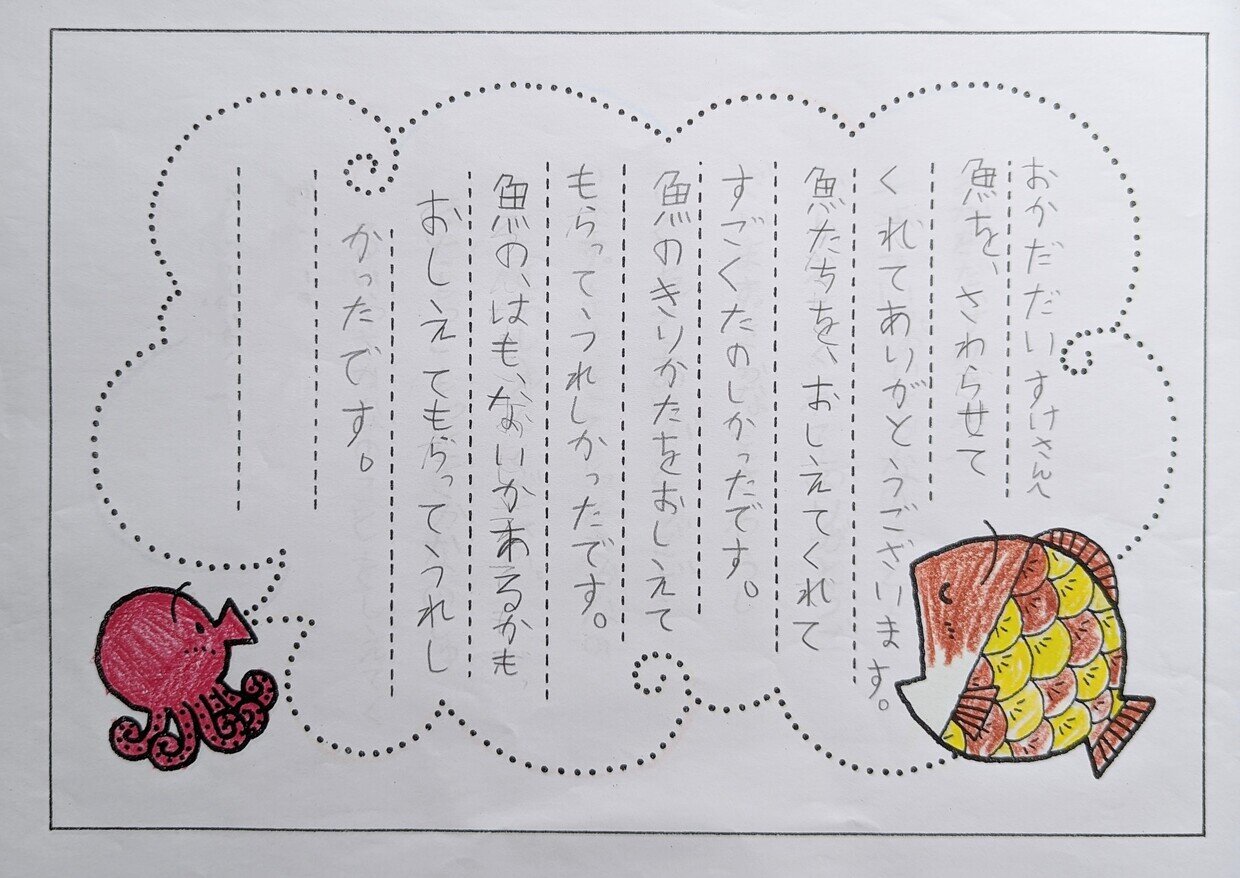 おかだだいすけさんへ
魚を、さわらせて
くれてありがとうございます。
魚たちを、おしえてくれて
すごくたのしかったです。
魚のきりかたをおしえて
もらって、うれしかったです。
魚の、はも、ないかあるかも
おしえてもらって、うれし
かったです。